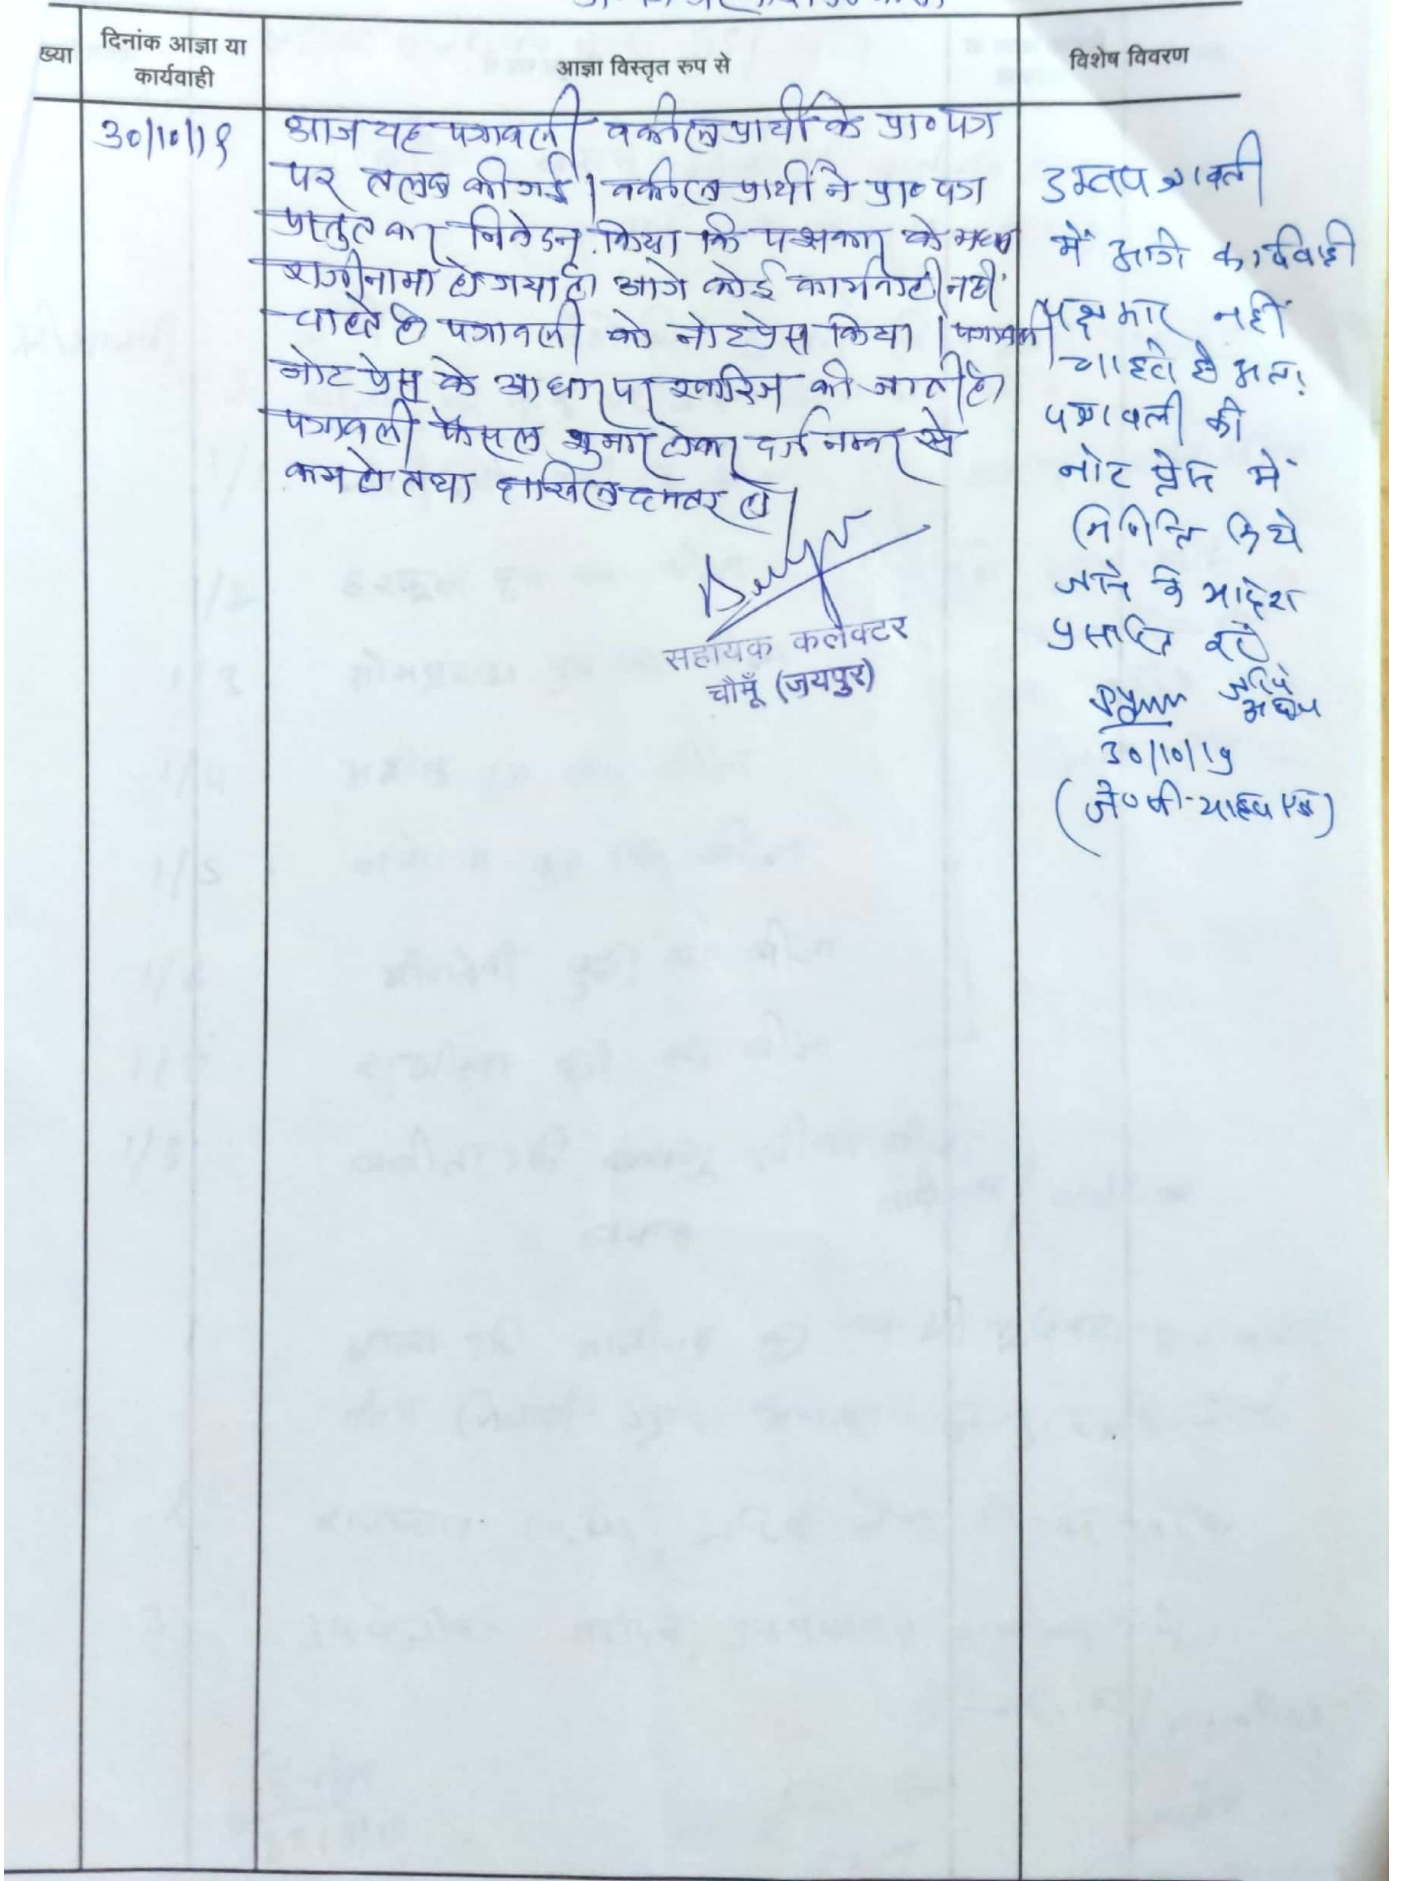 ख्या
दिनांक आज्ञा या
कार्यवाही
आज्ञा विस्तृत रुप से
विशेष विवरण
30/10/19
आज यह पत्रावली वकील प्रार्थी के प्रा० पत्र
पर तलब की गई। वकील प्रार्थी ने प्रा० पत्र
प्रस्तुत कर निवेदन किया कि पक्षकार के मध्य
राजीनामा हो गया है। आगे कोई कार्यवाही नहीं
चाहते है पत्रावली को नोटप्रेस किया। पत्रावली
नोट प्रेस के आधार पर खारिज की जाती है।
पत्रावली फैसल शुमार होकर दर्ज नम्बर से
कम हो तथा दाखिल दफ्तर हो।
सहायक कलेक्टर
चौमूँ (जयपुर)
उक्त पत्रावली
में आगे कार्यवाही
पक्षकार नहीं
चाहते है अतः
पत्रावली को
नोट प्रेस में
निर्णित किये
जाने के आदेश
प्रसारित करें
30/10/19